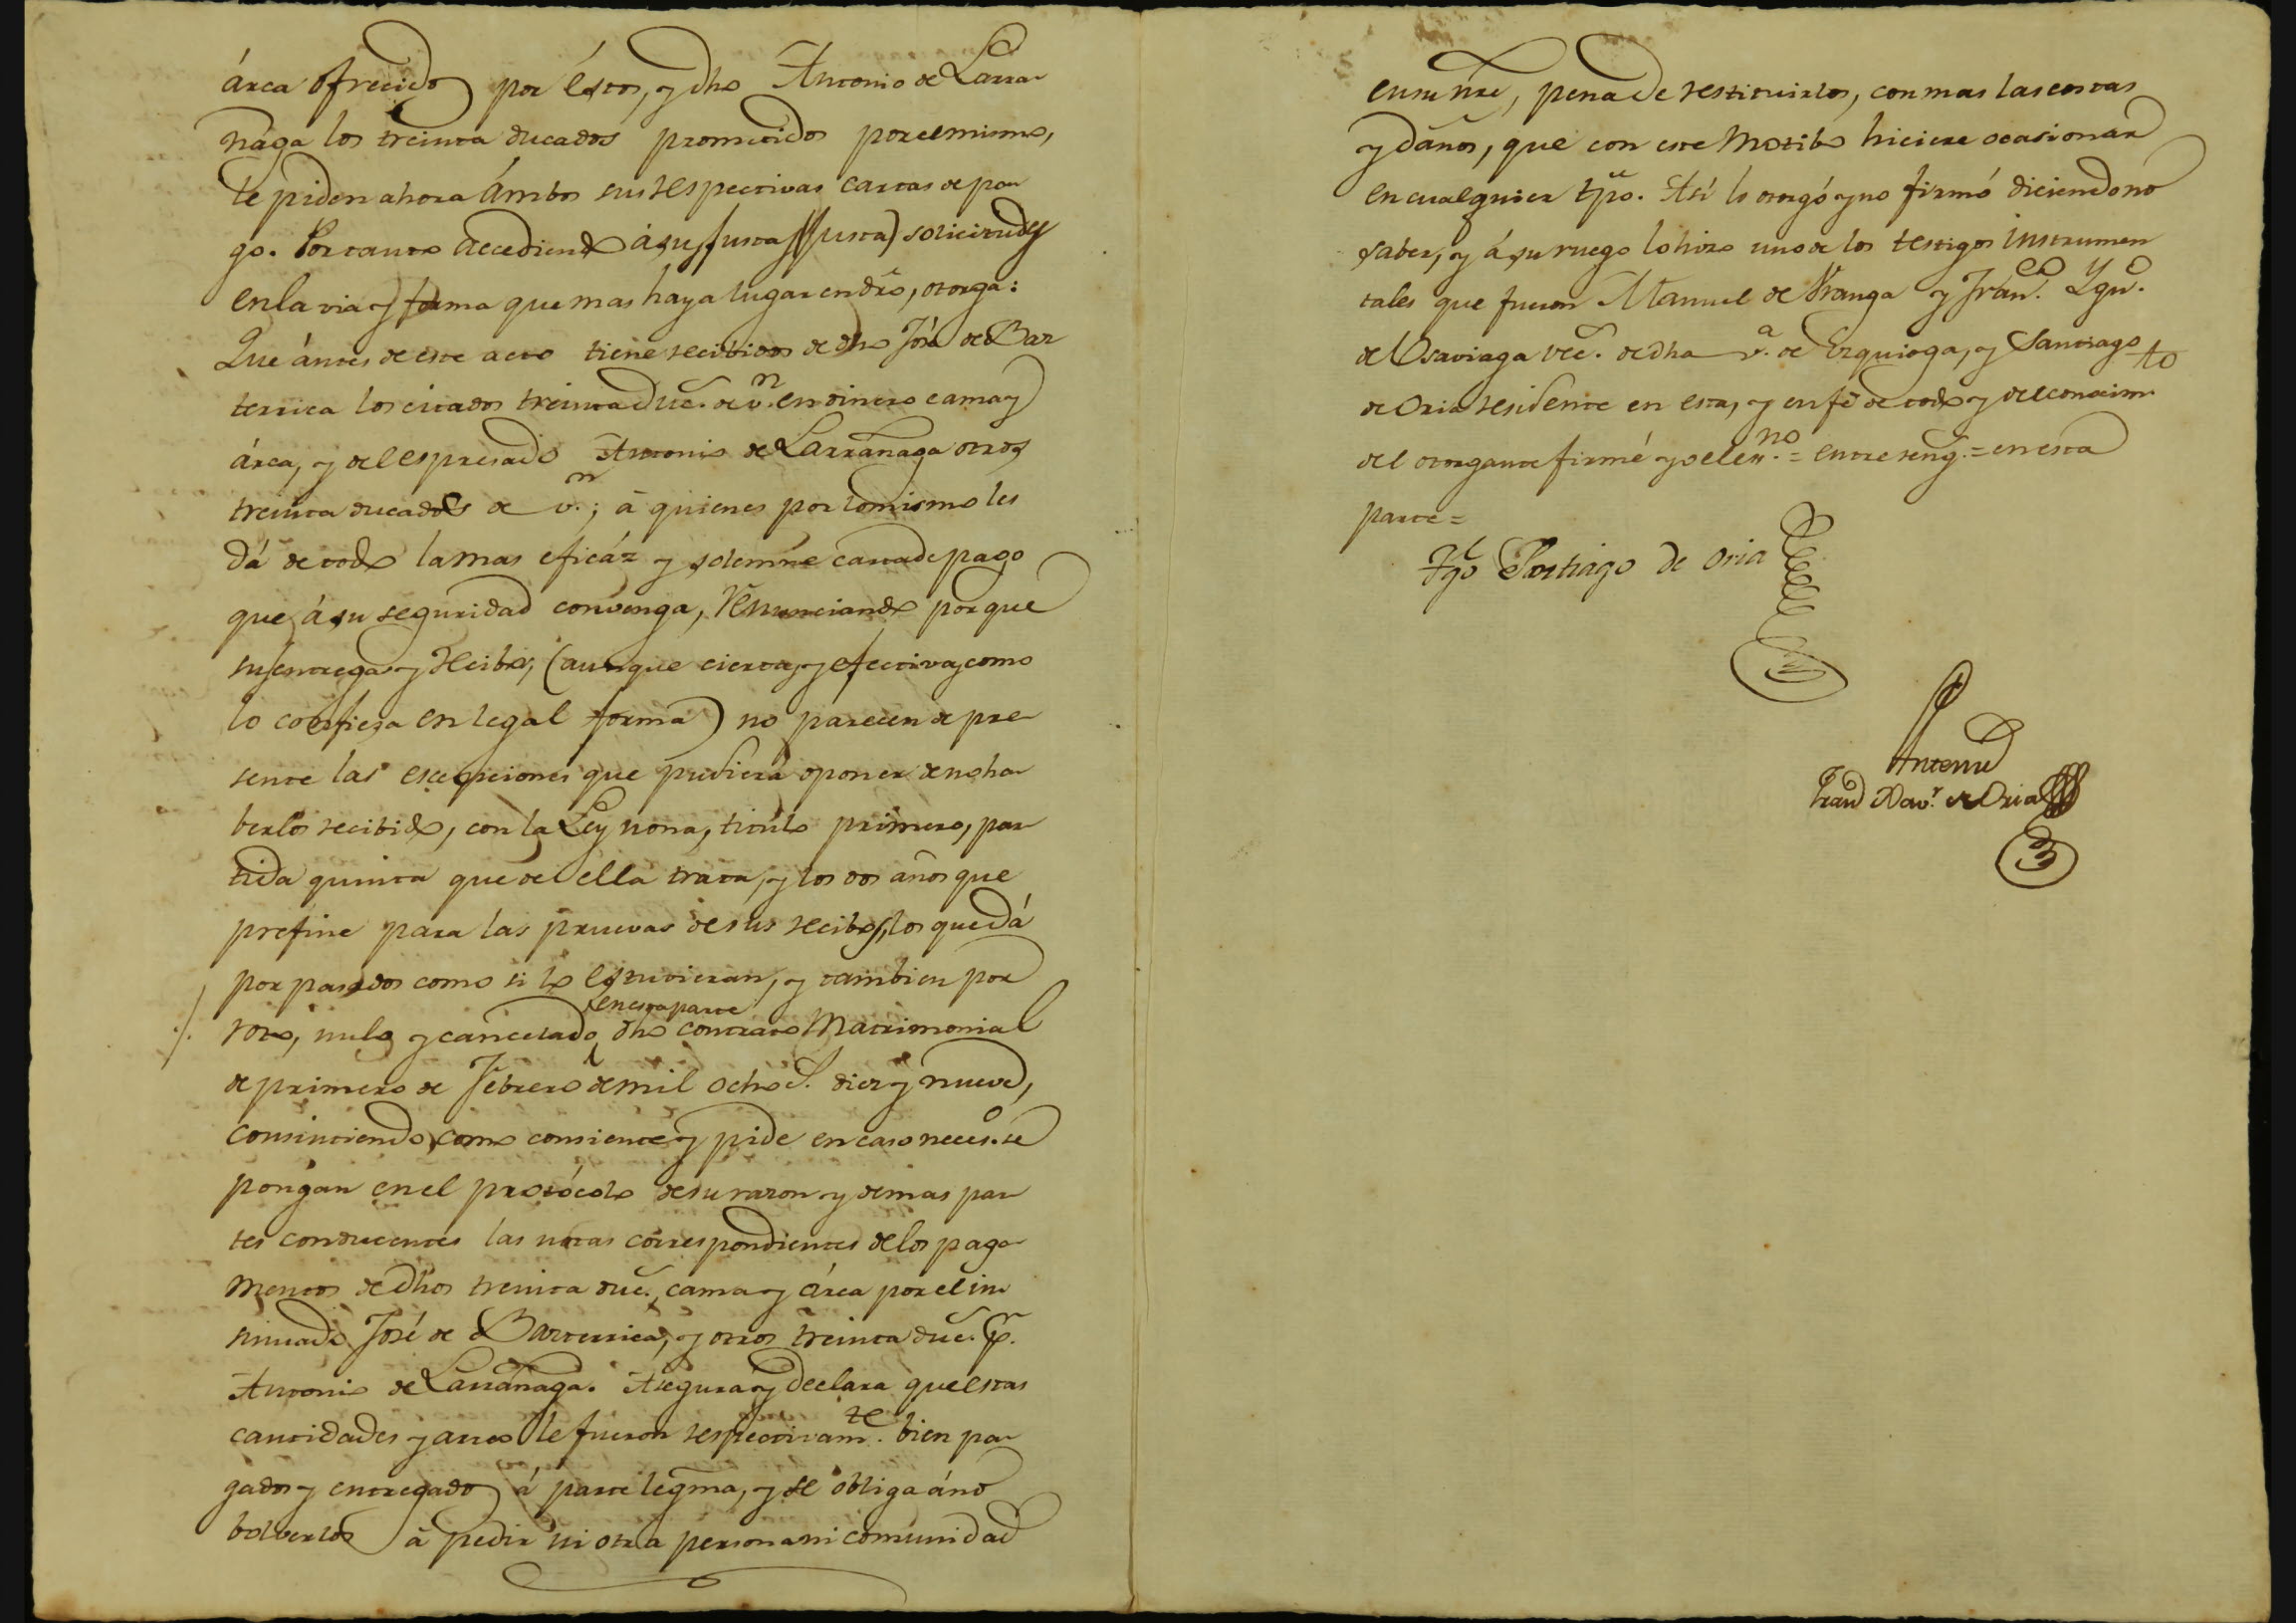 árca ofrecido por éstos, y dho Antonio de Larra
ñaga los treinta ducados prometidos por el mismo,
le piden ahora ámbos sus respectivas cartas de pa
go. Por tanto accediendo á su justa (justa) solicitud y
en la via y forma que mas haya lugar en dro, otorga:
Que ántes de este acto tiene recibidos de dho José de Bar
terrica los citados treinta duc.s de v.n en dinero cama y
árca, y del espresado Antonio de Larrañaga otros
treinta ducados de v.n; á quienes por lo mismo les
dá de todo la mas eficáz y solemne carta de pago
que á su seguridad convenga, renunciando porque
su entrega y recibo, (aunque cierta, y efectiva, como
lo confiesa en legal forma) no parecen de pre
sente las escepciones que pudiera oponer de no ha
berlos recibido, con la Ley nona, titulo primero, par
tida quinta que de ella trata, y los dos años que
prefine para las pruevas de sus recibos, los que dá
por pasados como si lo estuvieran, y tambien por
en esta parte
roto, nulo y cancelado dho contrato Matrimonial
de primero de Febrero de mil ocho c.s diez y nueve,
consintiendo, como consiente y pide en caso neces.o se
pongan en el protócolo de su razon y demas par
tes conducentes las notas correspondientes de los paga
mentos de dhos treinta duc.s, cama y árca por el in
sinuado José de Barterrica, y otros treinta duc.s p.r
Antonio de Larrañaga. Asegura y declara que estas
cantidades y arreo le fueron respectivam.te bien pa
gados y entregados á parte legma, y se obliga á no
bolverlos á pedir ni otra persona ni comunidad
en su nre, pena de restituirlos, con mas las costas
y daños, que con este motibo hiciere ocasionar
en cualquier tpo. Así lo otorgó y no firmó diciendo no
saber, y á su ruego lo hizo uno de los testigos instrumen
tales que fueron Manuel de Uranga y Fran.co Ygn.o
de Usaviaga vec.s de dha v.a de Ezquioga, y Santiago
de Oria residente en esta, y en fé de todo y del conocim.to
del otorgante firmé yo el es.no = entre reng.s = en esta
parte =
Tgo Santiago de Oria
Antemi
Fran.co Xav.r de Oria